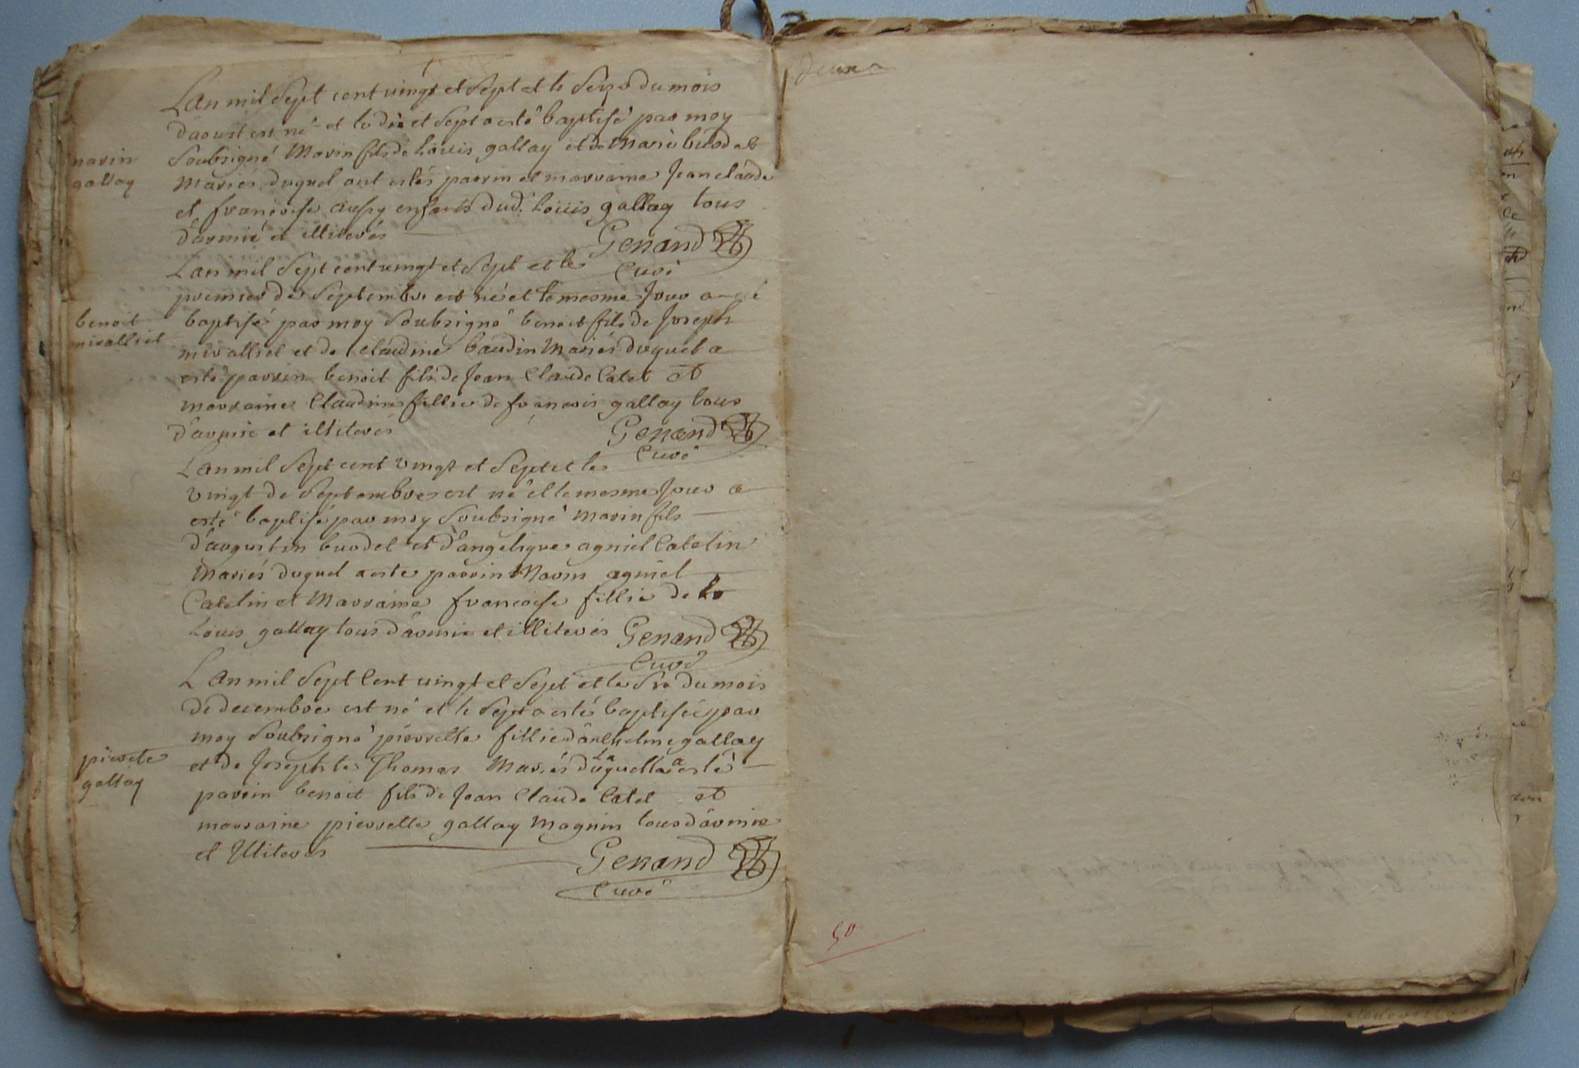 Lan mil Sept cent vingt et Sept et le Seize du mois
d'aoust est né et le dix et Sept a esté baptisé par moy
marin
gallay
Soubsigné Marin fils de Louis gallay et de Marie burdet
Mariés duquel ont estés parrin et marraine Jean claude
et francoise aussy enfants dud. Louis gallay tous
d'avmié et illiterés
Genand
Curé
Lan mil Sept cent vingt et Sept et le
premier de Septembre est né et le mesme Jour a esté
benoit
miralliet
baptisé par moy Soubsigné benoit fils de Joseph
miralliet et de Claudine baudin Mariés duquel a
esté parrin benoit fils de Jean Claude Catet et
marraine Claudine fillie de francois gallay tous
d'avmié et illiterés
Genand
Curé
Lan mil Sept cent vingt et Sept et le
vingt de Septembre est né et le mesme Jour a
esté baptisé par moy Soubsigné marin fils
d'augustin burdet et d'angelique agniel Catelin
Mariés duquel a esté parrin Marin agniel
Catelin et Marraine francoise fillie de
Louis gallay tous d'avmié et illiterés
Genand
Curé
Lan mil Sept Cent vingt et Sept et le Six du mois
de decembre est né et le Sept a esté baptisée par
moy Soubsigné pierrette fillie d'anthelme gallay
pierete
gallay
et de Josephte Thomas Mariés de laquelle a esté
parrin benoit fils de Jean Claude Catet et
marraine pierrette gallay Magnin tous d'avmié
et Illiterés
Genand
Curé
50